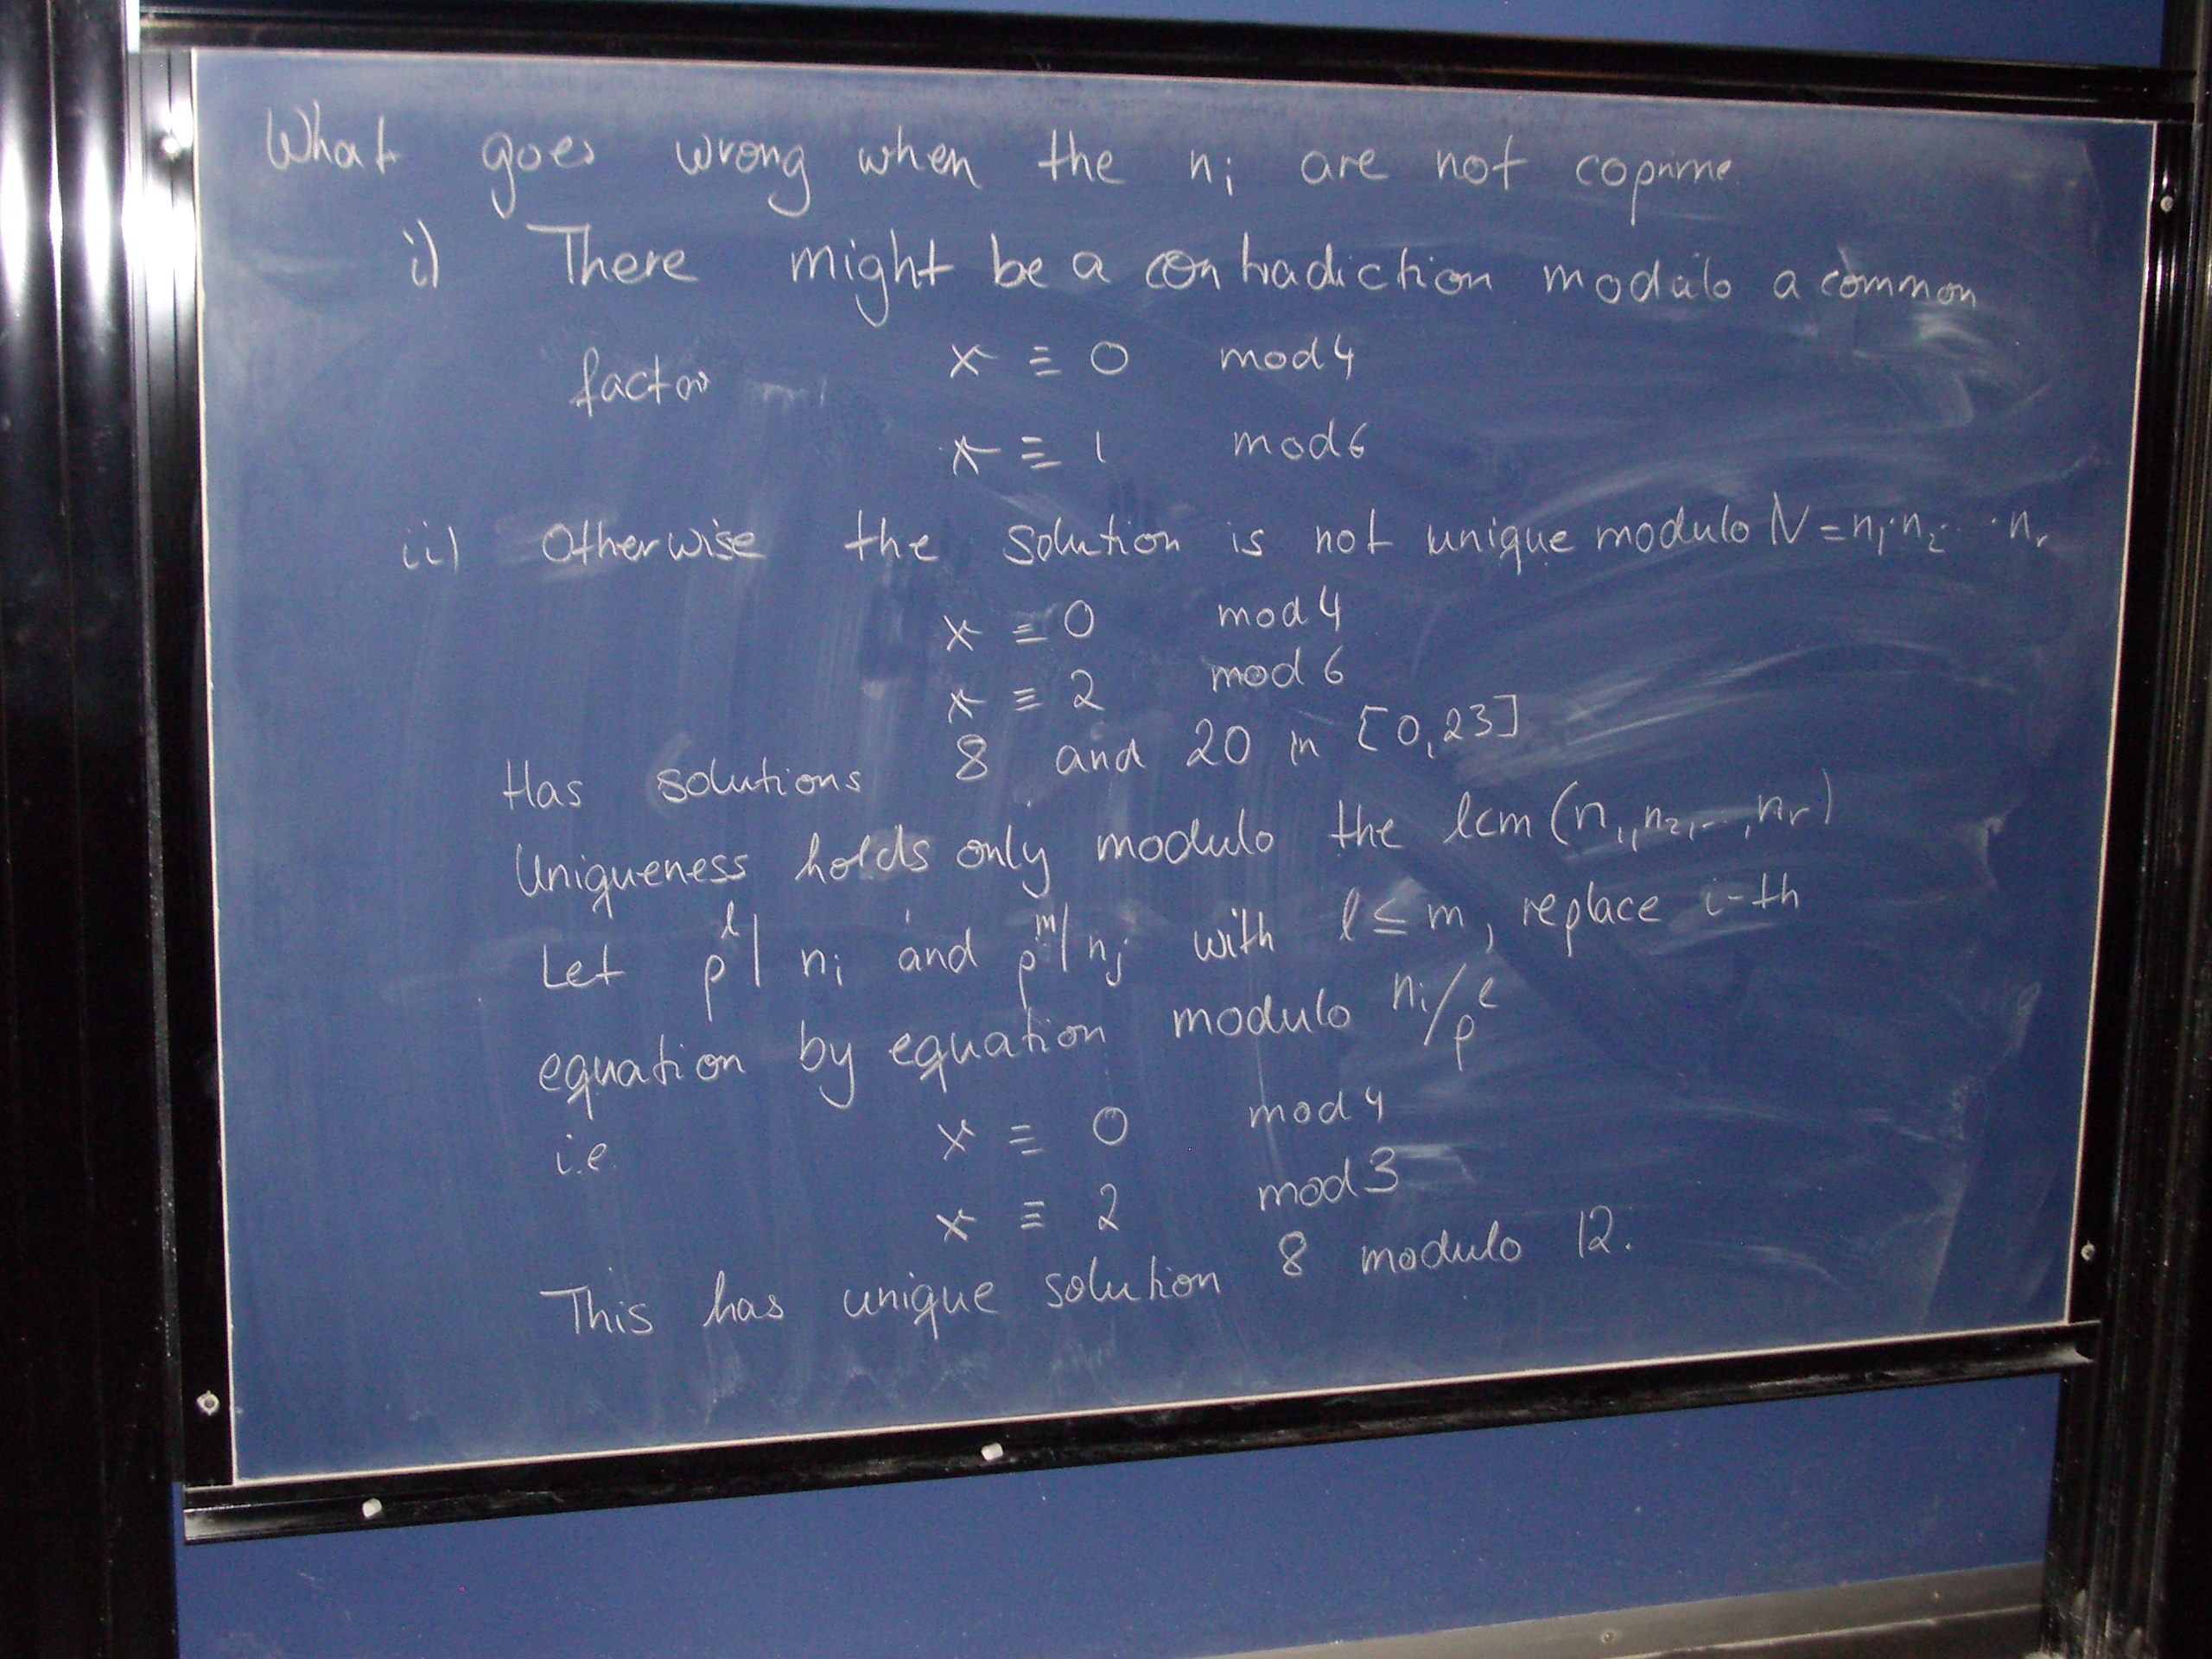 What goes wrong when the nᵢ are not coprime
i) There might be a contradiction modulo a common
factor x ≡ 0 mod 4
x ≡ 1 mod 6
ii) Otherwise the solution is not unique modulo N = n₁·n₂·…·nᵣ
x ≡ 0 mod 4
x ≡ 2 mod 6
Has solutions 8 and 20 in [0,23]
Uniqueness holds only modulo the lcm (n₁,n₂,…,nᵣ)
Let pˡ| nᵢ and pᵐ| nⱼ with l ≤ m, replace i-th
equation by equation modulo nᵢ/pˡ
i.e. x ≡ 0 mod 4
x ≡ 2 mod 3
This has unique solution 8 modulo 12.